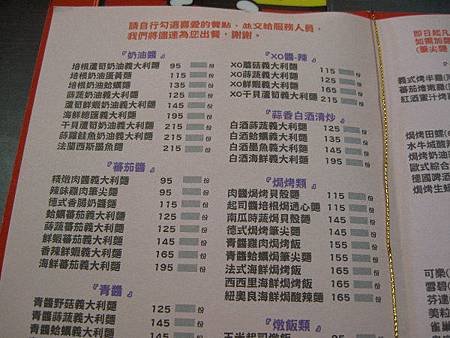 請自行勾選喜愛的餐點、並交給服務人員,
我們將儘速為您出餐,謝謝。
『奶油醬』
培根蘆筍奶油義大利麵 95 份
培根奶油蛋黃麵 115 份
培根奶油蛤蠣麵 135 份
蒔蔬奶油義大利麵 125 份
蘆筍鮮蝦奶油義大利麵 145 份
海鮮總匯義大利麵 195 份
干貝蘆筍奶油義大利麵 215 份
蒜蘿鮭魚奶油義大利麵 215 份
法蘭西斯墨魚麵 215 份
『蕃茄醬』
精燉肉醬義大利麵 95 份
辣味雞肉筆尖麵 95 份
德式香腸奶醬麵 115 份
蛤蠣蕃茄義大利麵 125 份
蒔蔬蕃茄義大利麵 125 份
鮮蝦蕃茄義大利麵 145 份
香辣鮮蝦義大利麵 165 份
海鮮蕃茄義大利麵 195 份
『青醬』
青醬野菇義大利麵 125 份
青醬蒔蔬義大利麵 145 份
青醬蛤蠣義大利麵 145 份
『xo醬-辣』
xo蘑菇義大利麵 115 份
xo蒔蔬義大利麵 135 份
xo鮮蝦義大利麵 165 份
xo干貝蘆筍義大利麵 215 份
『蒜香白酒清炒』
白酒蒔蔬義大利麵 125 份
白酒蛤蠣義大利麵 135 份
白酒墨魚義大利麵 145 份
白酒海鮮義大利麵 195 份
『焗烤類』
肉醬焗烤貝殼麵 115 份
起司醬培根焗通心麵 115 份
南瓜蒔蔬焗貝殼麵 145 份
德式焗烤筆尖麵 145 份
青醬雞肉焗烤飯 155 份
青醬蛤蠣焗筆尖麵 155 份
法式海鮮焗烤飯 165 份
西西里海鮮焗烤飯 165 份
紐奧良海鮮焗酸辣麵 165 份
『燉飯類』
即日起凡
如需加
(筆尖麵
義式烤半雞(
蕃茄燉嫩雞(
紅酒薑汁烤
焗烤田螺(
水牛城酸辣
焗烤奶油
歐式綜合
德國啤酒
焗烤生蠔
可樂(
雪碧(
芬達
美粒
雀巢